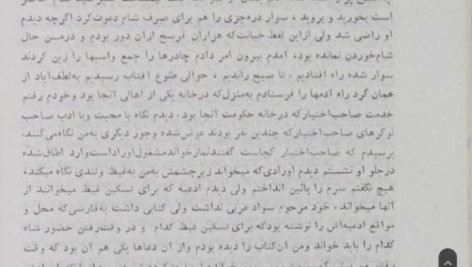 است بخورید و بروید ، سوار دره‌جزی را هم برای صرف شام دعوت‌کرد اگرچه بدم
او راضی شد ولی ازاین لفظ خیانت‌که هزاران فرسخ ازان دور بودم و درمن حال
شام‌خوردن نمانده بود، آمدم بیرون امر دادم چادرها را جمع واسبها را زین کردند
سوار شده راه افتادیم . تا صبح راندیم ، حوالی طلوع آفتاب رسیدیم به‌لطف‌آباد از
همان گرد راه آدمها را فرستادم به‌منزل‌که درخانه یکی از اهالی آنجا بود وخودم رفتم
خدمت صاحب‌اختیارکه درخانه حکومت آنجا بود. دیدم نگاه با محبت وبا ادب صاحب
نوکرهای صاحب‌اختیارکه چندین نفر بودند عوض‌شده وجور دیگری به‌من نگاه‌می‌کنند.
پرسیدم که صاحب‌اختیار کجاست گفتندنمازخوانده‌مشغول‌اوراداست‌وارد اطاق‌شده
درجلو او نشستم دیدم اورادی‌که میخواند زیرچشمش به‌من به‌غیظ وتندی نگاه میکند،
هیچ نگفتم سرم را پائین انداختم ولی دیدم ادعیه که برای تسکین غیظ میخوانند از
آنها میخواند ، خود مرحوم سواد عربی نداشت ولی کتابی داشت به‌فارسی‌که محل و
مواقع ادعیه‌اش را نوشته بودکه برای تسکین غیظ کدام و در وقت‌رفتن حضور شاه
کدام را باید خواند ومن آن‌کتاب را دیده بودم واز آن دعاها یکی هم آن بود که وقت